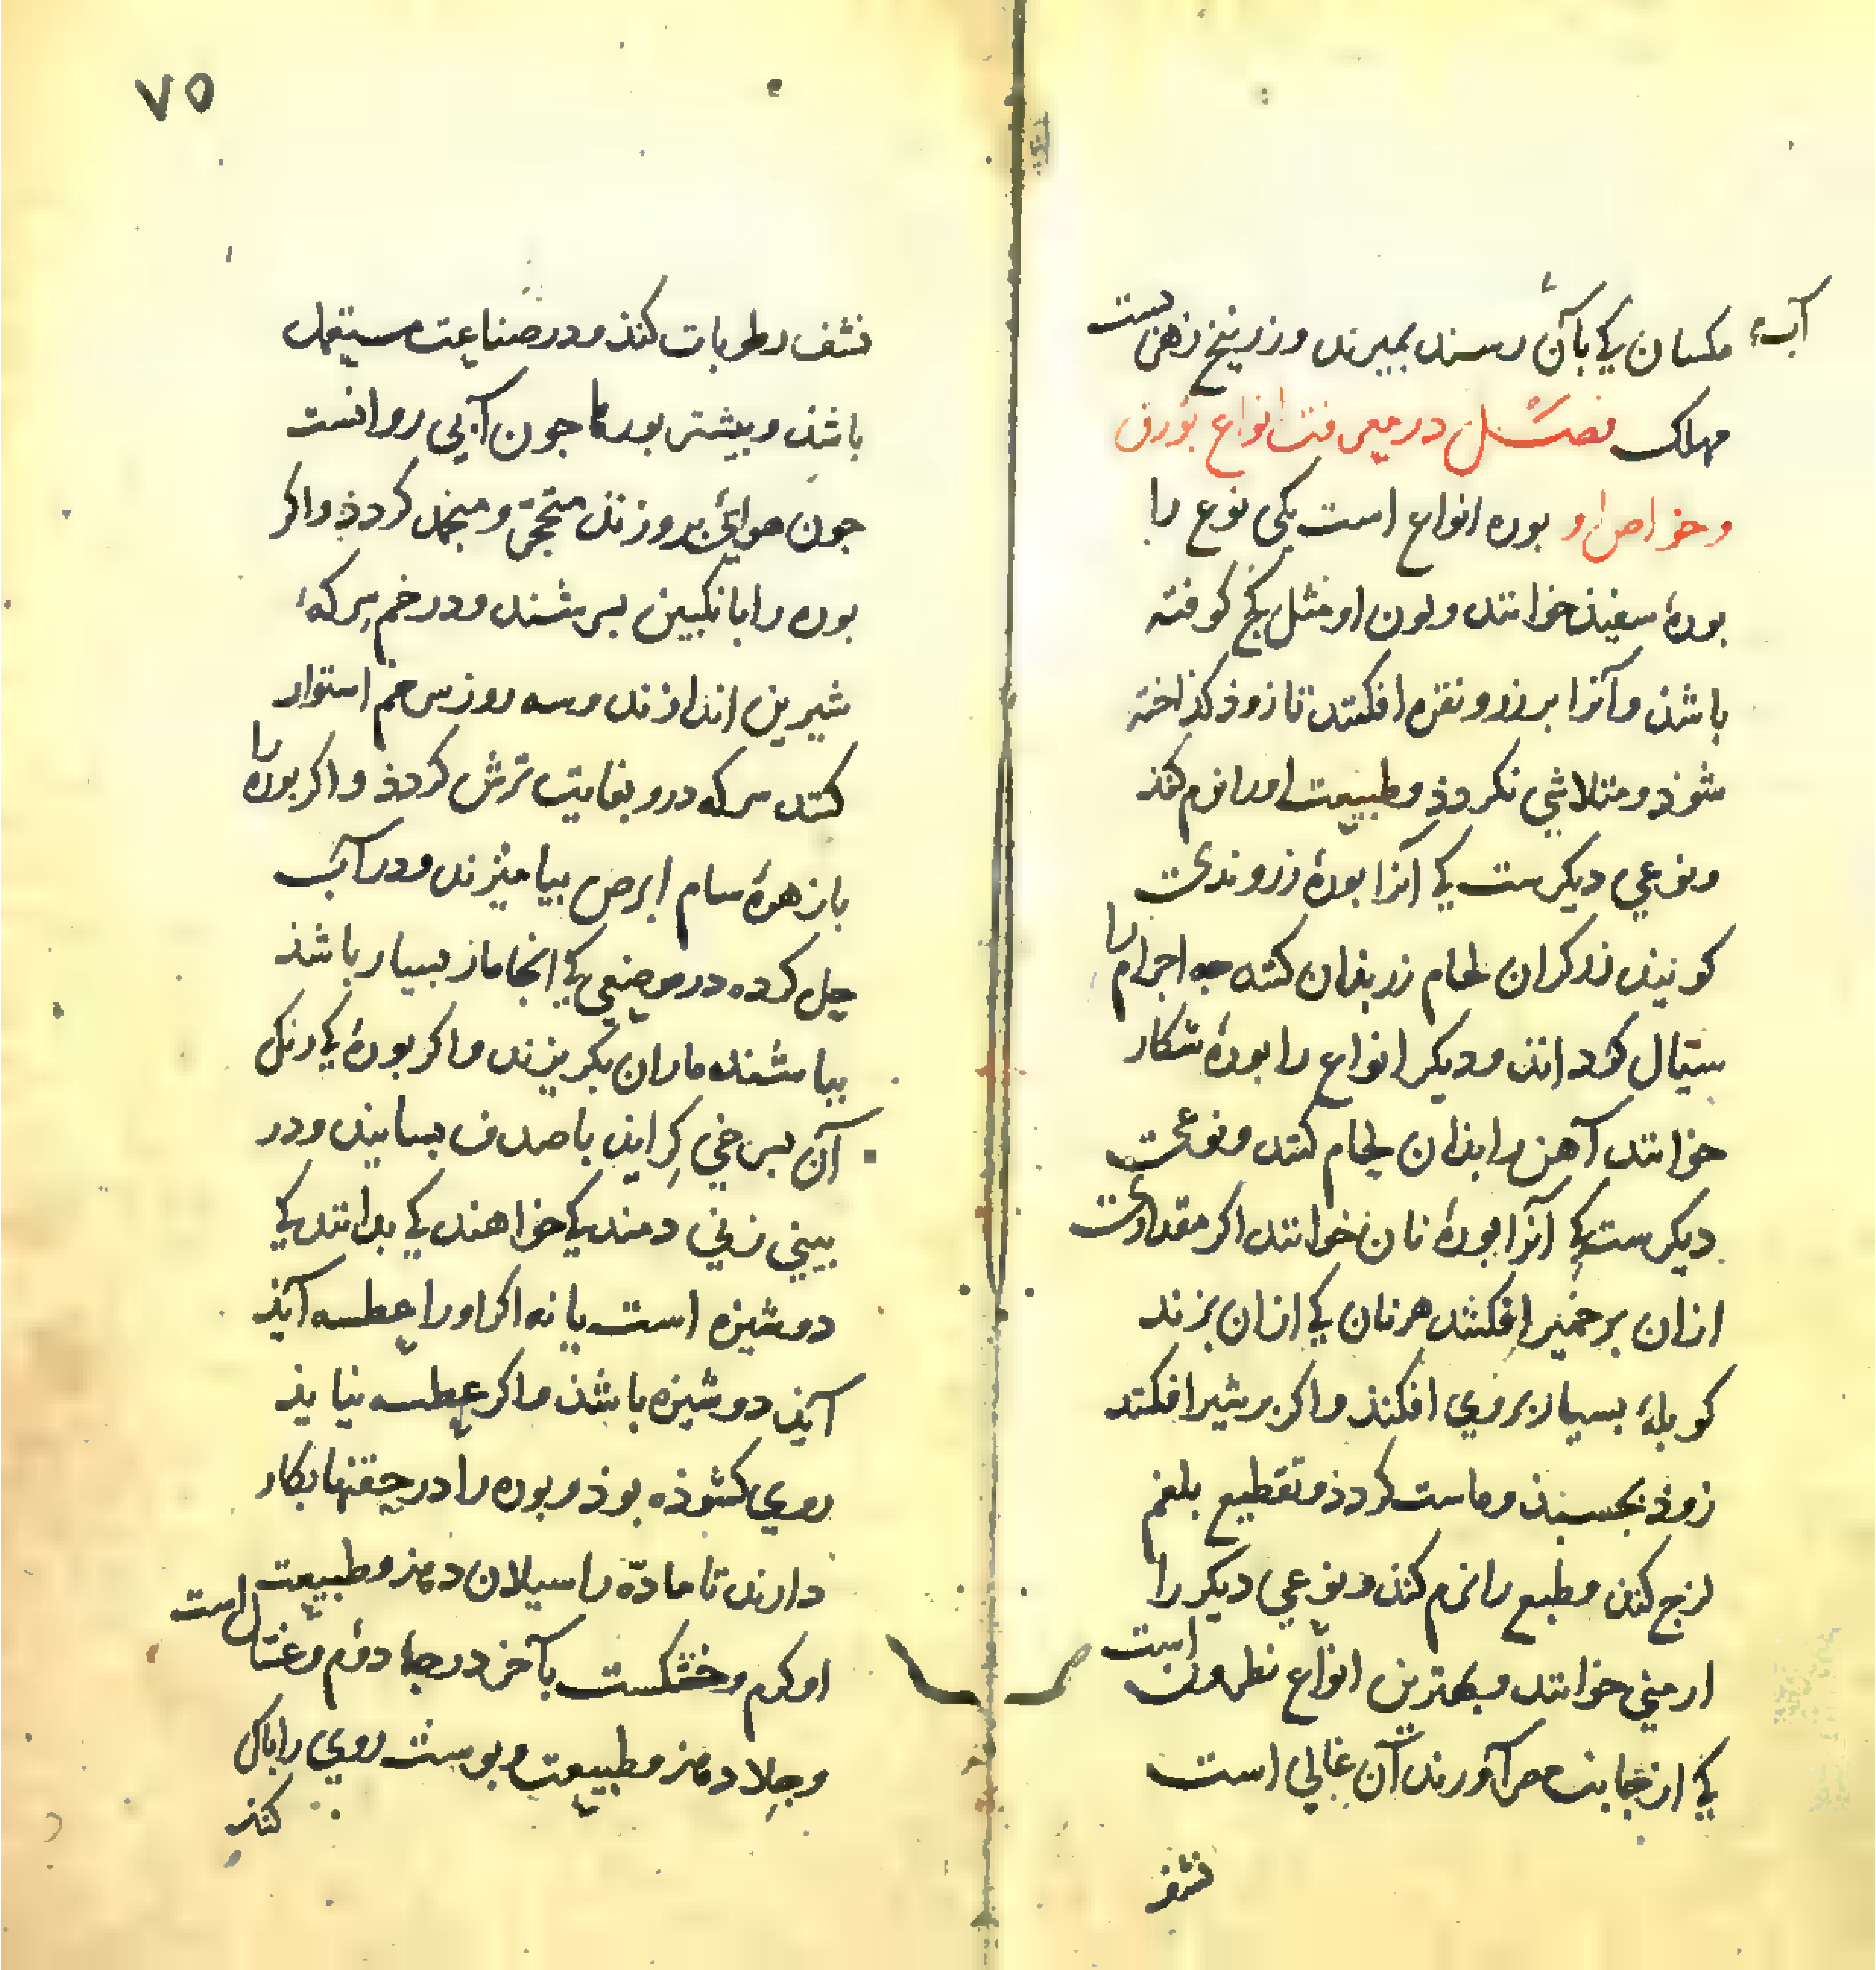 مکسان کی بآن رسند بمیرند و زرنیخ زهرست
آب
مهلک فصل در معرفت انواع بورق
و خواص او بوره انواع است یکی نوع را
بورهٔ سفیذ خوانند و لون او مثل کج کوفته
باشذ و آنرا بر زر و نقره افکنند تا زوذ کذاخته
شوذ و متلاشی نکردذ و طبیعت او را نرم کند
و نوعی دیکرست کی آنرا بورهٔ زروندی
کویند زرکران لحام زر بذان کنند اجرام را
سیال کرداند و دیکر انواع را بورهٔ شکار
خوانند آهن را بذان لحام کنند و نوعی
دیکرست کی آنرا بورهٔ نان خوانند اکر مقداری
ازان بر خمیر افکنند هر نان کی ازان بزند
بسیار بر روی افکند و اکر بر شیر افکنند
زوذ بجسبذ و ماست کردذ و تقطیع بلغم
لزج کند و طبع را نرم کند و نوعی دیکر را
ارمنی خوانند و بهترین انواع نطرون است
کی از جانب آورند آن غالی است
نشف
٧٥
نشف رطوبات کنذ و در صناعت مستعمل
باشذ و بیشتر بورها جون آبی روانست
جون هوایی بروزند متحجر و منجمد کردذ و اکر
بوره را بانکبین بسرشند و در خم سرکهٔ
شیرین اندازند و سه روز سر خم استوار
کنند سرکه درو بغایت ترش کردذ و اکر بوره را
با زهرهٔ سام ابرص بیامیزند و در آب
حل کرده در موضعی کی انجا مار بسیار باشذ
بباشند ماران بکریزند و اکر بورهٔ کی رنک
آن بسرخی کراید با صدف بسایند و در
بینی زنی دمند کی خواهند کی بدانند کی
دوشیزه است یا نه اکر او را عطسه آیذ
آیذ دوشیزه باشذ و اکر عطسه نیایذ
روی کشوذه بوذ و بوره را در حقنها بکار
دارند تا ماده را سیلان دهد و طبیعت
او کرم و خشکست بآخر درجهٔ دوم و غسال است
و جلا دهد و طبیعت و بوست روی را باک
کند